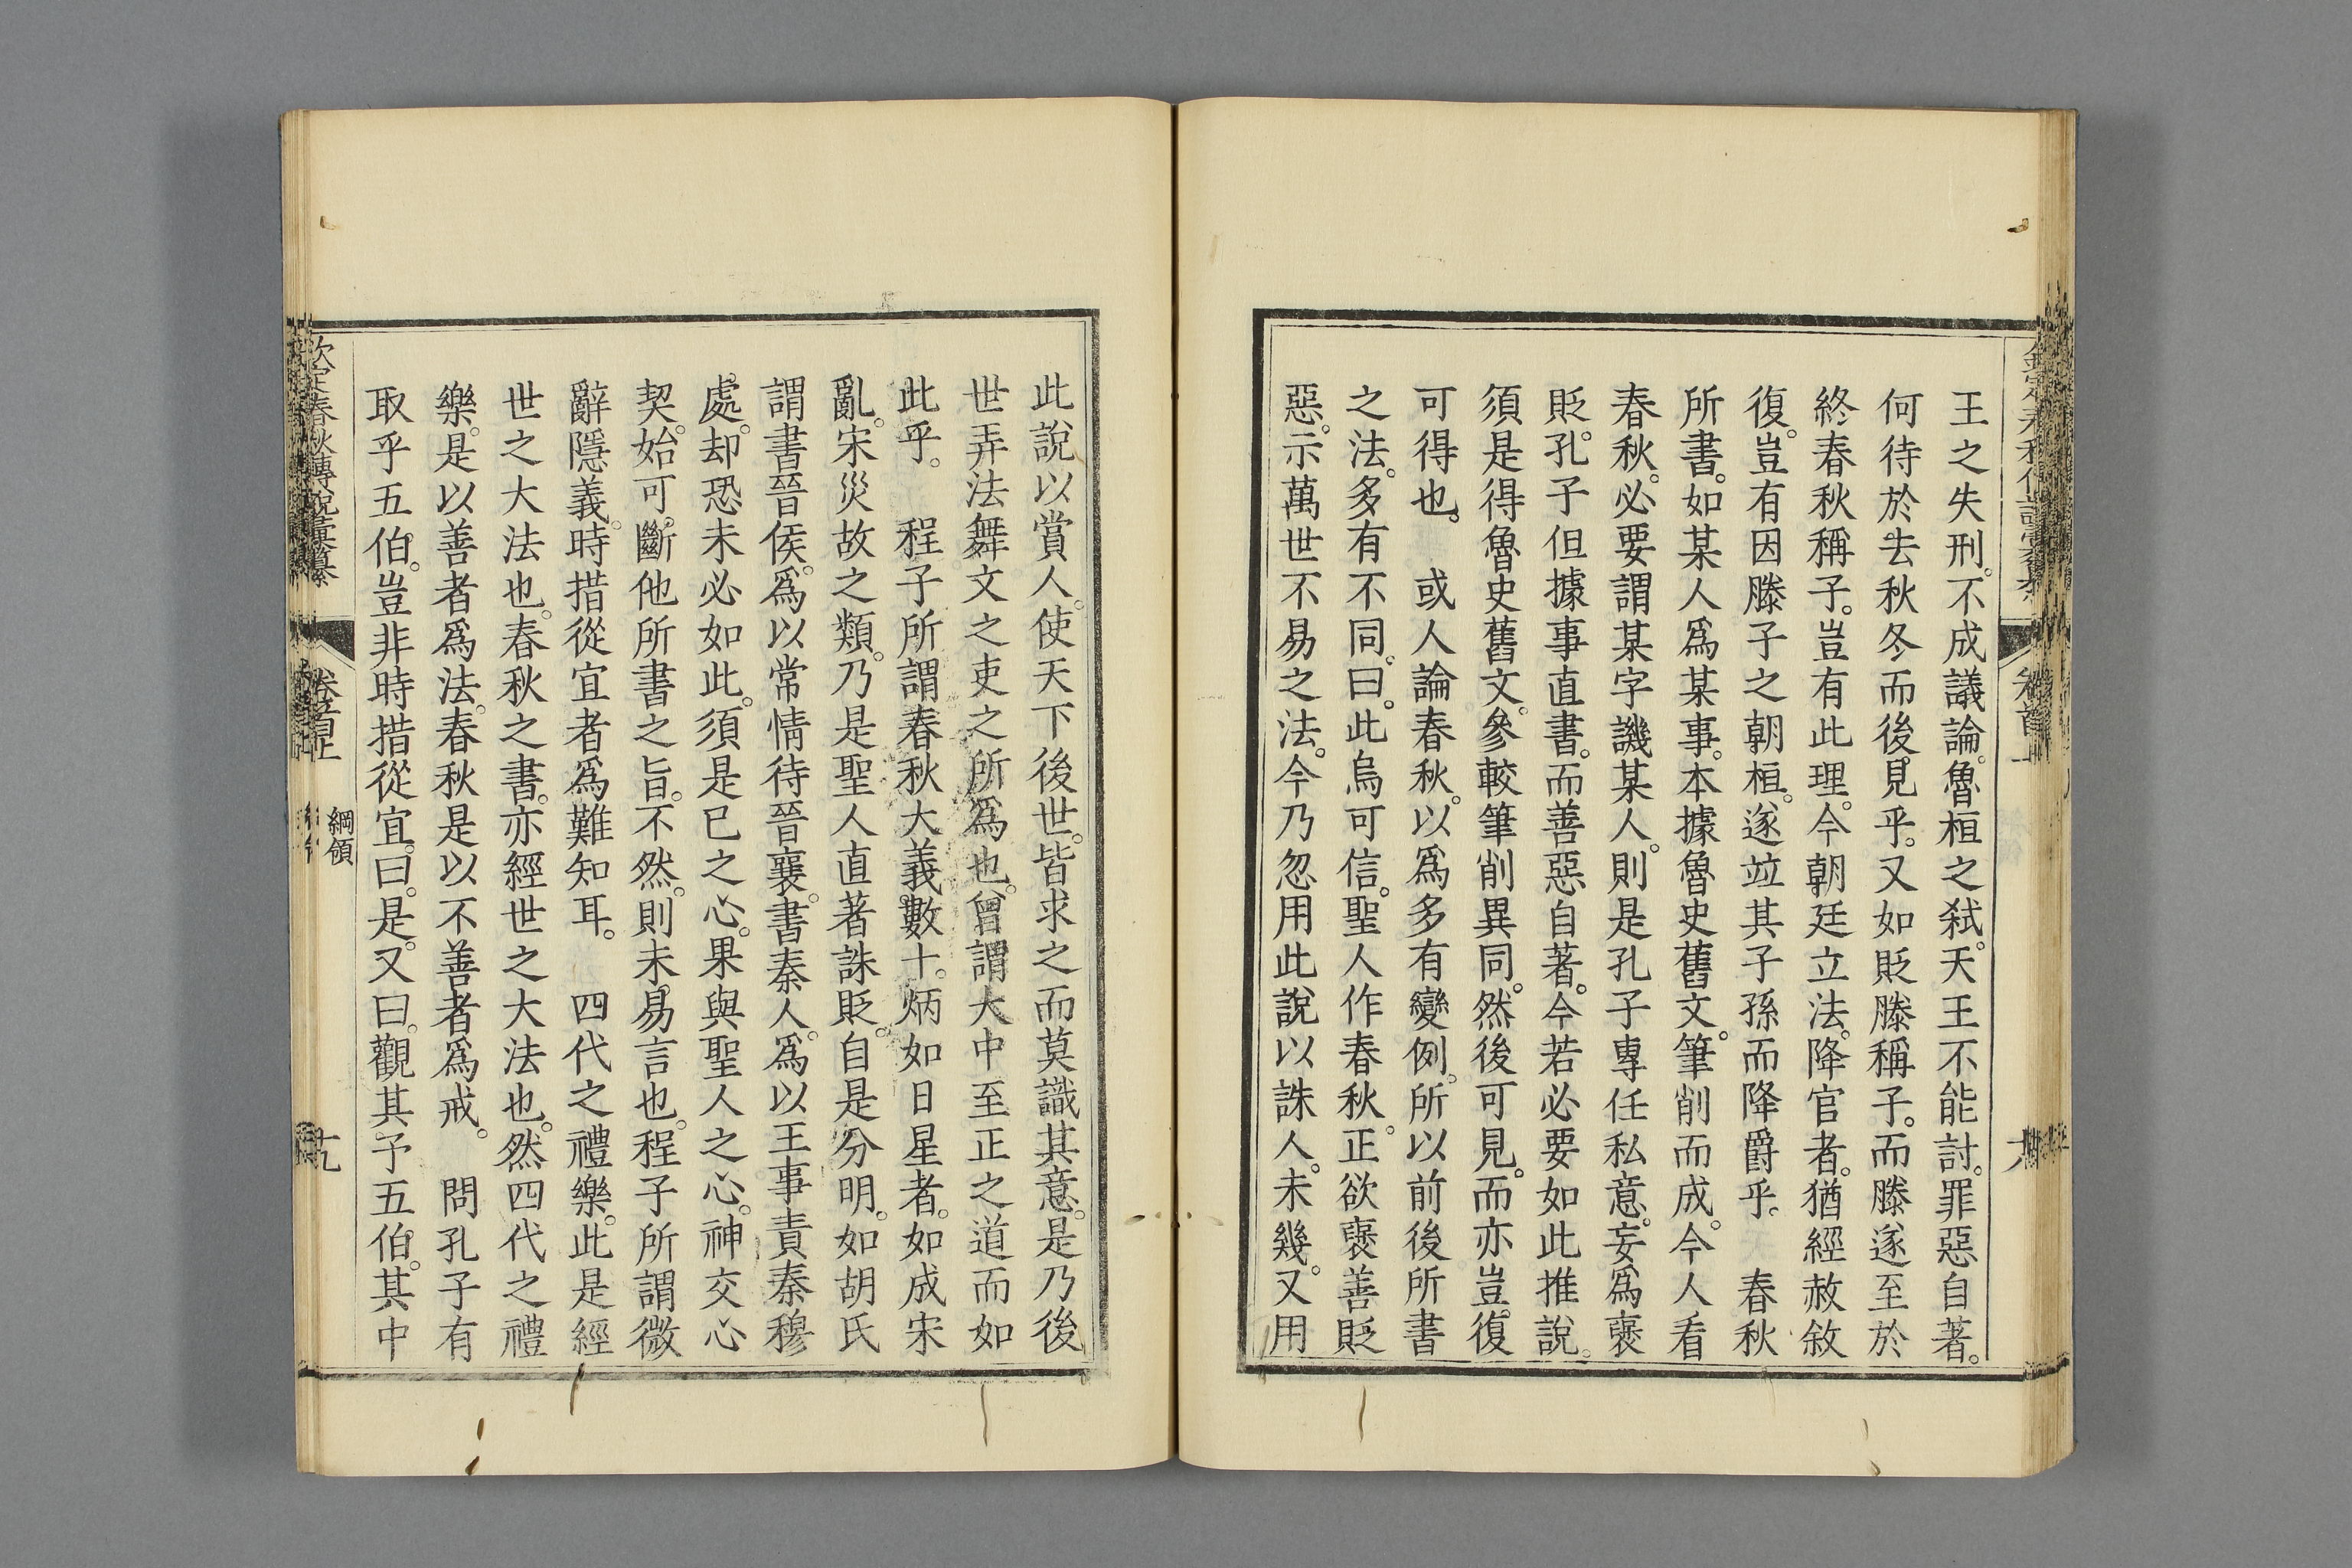 王之失刑。不成議論。魯桓之弑。天王不能討。罪惡自著。
何待於去秋冬而後見乎。又如貶滕稱子。而滕遂至於
終春秋稱子。豈有此理。今朝廷立法。降官者。猶經赦敘
復。豈有因滕子之朝桓。遂竝其子孫而降爵乎。　春秋
所書。如某人爲某事。本據魯史舊文。筆削而成。今人看
春秋。必要謂某字譏某人。則是孔子專任私意。妄爲褒
貶。孔子但據事直書。而善惡自著。今若必要如此推說。
須是得魯史舊文。參較筆削異同。然後可見。而亦豈復
可得也。　或人論春秋。以爲多有變例。所以前後所書
之法。多有不同。曰。此烏可信。聖人作春秋。正欲褒善貶
惡。示萬世不易之法。今乃忽用此說以誅人。未幾。又用
此說以賞人。使天下後世。皆求之而莫識其意。是乃後
世弄法舞文之吏之所爲也。曾謂大中至正之道而如
此乎。　程子所謂春秋大義數十。炳如日星者。如成宋
亂。宋災故之類。乃是聖人直著誅貶。自是分明。如胡氏
謂書晉侯。爲以常情待晉襄。書秦人。爲以王事責秦穆
處。却恐未必如此。須是已之心。果與聖人之心。神交心
契。始可斷他所書之旨。不然。則未易言也。程子所謂微
辭隱義。時措從宜者爲難知耳。　四代之禮樂。此是經
世之大法也。春秋之書。亦經世之大法也。然四代之禮
樂。是以善者爲法。春秋是以不善者爲戒。　問孔子有
取乎五伯。豈非時措從宜。曰。是。又曰。觀其予五伯。其中
欽定春秋傳說彙纂
卷首上
綱領
十九